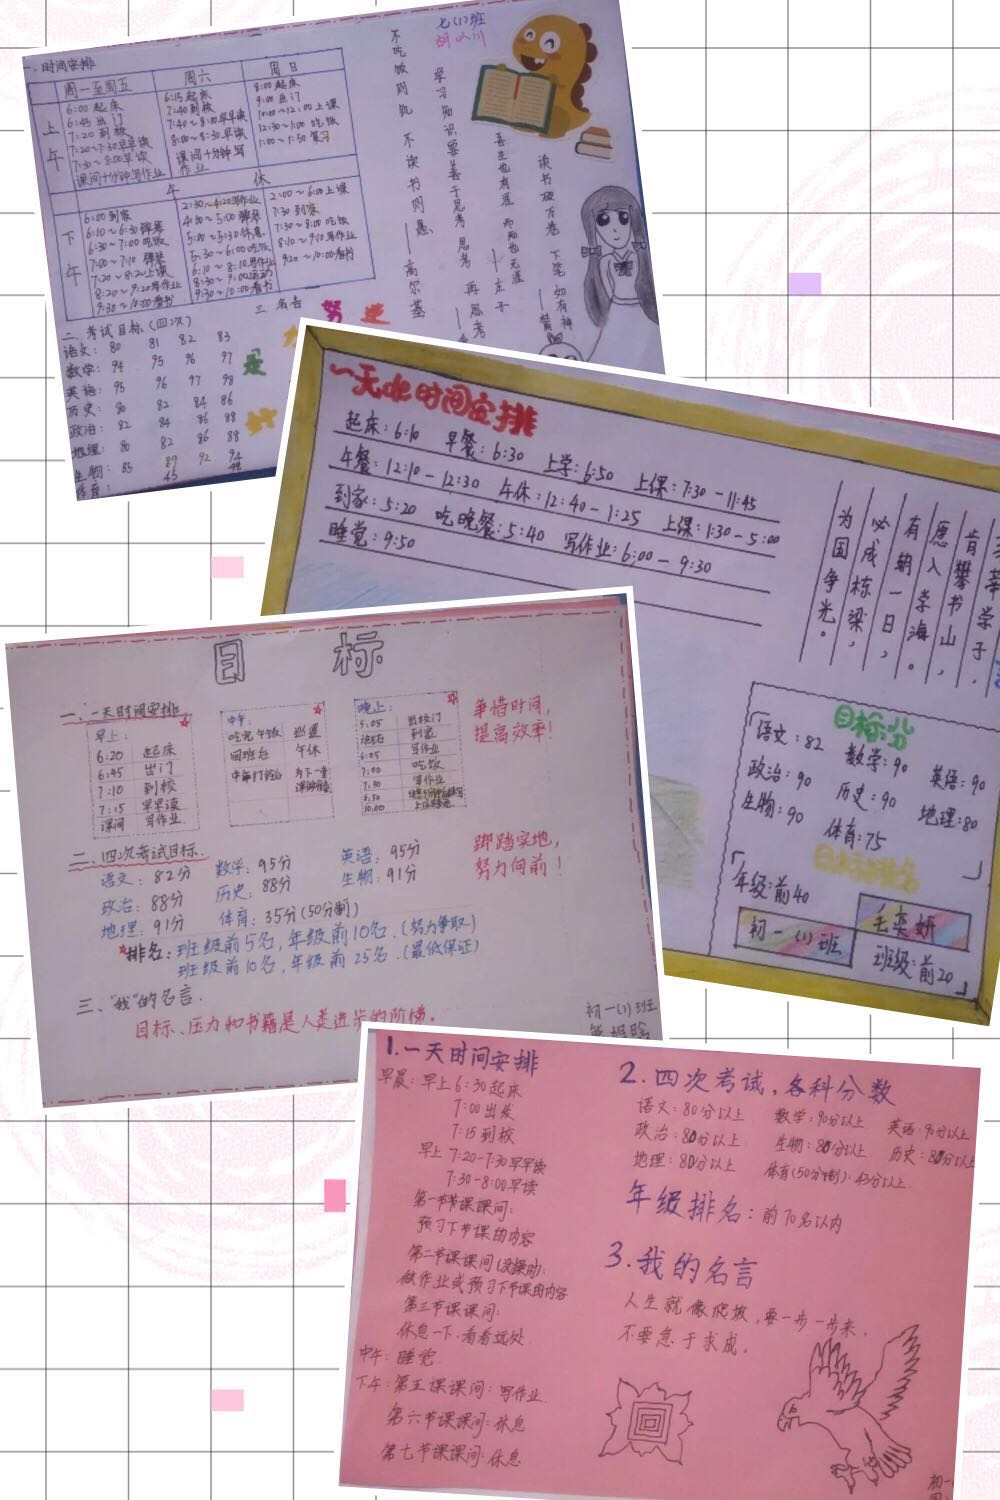 七(1)班
一.时间安排
周一至周五
周六
周日
上午
6:00 起床
6:45 出门
7:20 到校
7:20~7:30早早读
7:30~8:00早读
课间十分钟写作业
6:15起床
7:40到校
7:40~8:00早早读
8:00~8:30早读
课间十分钟写
作业
8:00起床
9:00出门
10:00~12:00上课
12:30~1:00 吃饭
1:00~1:50 复习
午休
下午
6:00 到家
6:10~6:30弹琴
6:30~7:00吃饭
7:00~7:10 弹琴
7:20~8:20上课
8:20~9:20写作业
9:30~10:00看书
2:30~4:20写作业
4:30~5:00弹琴
5:00~5:30休息
5:30~6:00吃饭
6:10~8:10写作业
8:30~9:00运动
9:30~10:00看书
2:00~6:00上课
7:30到家
7:30~8:00吃饭
8:10~9:10写作业
9:20~10:00看书
不吃饭则饥 不读书则愚 ——高尔基
学习知识要善于思考 思考 再思考
吾生也有涯 而知也无涯 ——庄子
读书破万卷 下笔如有神
二、考试目标(四次)
语文: 80 81 82 83
数学: 94 95 96 97
英语: 95 96 97 98
历史: 80 82 84 86
政治: 82 84 86 88
地理: 80 82 86 88
生物: 85 89 92 94
体育: 45 48
三.名言
努
一天时间安排
起床:6:10 早餐:6:30 上学:6:50 上课:7:30-11:45
午餐:12:10-12:30 午休:12:40-1:25 上课:1:30-5:00
到家:5:20 吃晚餐:5:40 写作业:6:00-9:30
睡觉:9:50
莘莘学子,
肯攀书山,
愿入学海。
有朝一日,
必成栋梁,
为国争光。
目标分
语文:82 数学:90 英语:90
政治:90 历史:90 地理:80
生物:90 体育:75
目标排名
「年级:前40
初一(1)班
毛奕妍
班级:前20」
目标
一、一天时间安排
早上:
6:20 起床
6:45 出门
7:10 到校
7:15 早早读
课间 写作业
中午:
吃完午饭 巡逻
回班后 午休
晚上:
5:05 出校门
到家
6:05 写作业
7:00 吃饭
7:30 写作业
8:50
10:00
争惜时间,
提高效率!
二、四次考试目标.
语文:82分 数学:95分 英语:95分
政治:88分 历史:88分 生物:91分
地理:91分 体育:35分(50分制)
脚踏实地,
努力向前!
排名:班级前5名,年级前10名.(努力争取)
班级前10名,年级前25名.(最低保证)
三、“我”的名言.
目标、压力和书籍是人类进步的阶梯。
初一(1)班
1.一天时间安排
早晨:早上6:30起床
7:00出发
7:15到校
早上7:20-7:30早早读
7:30-8:00早读
第一节课课间:
预习下节课的内容
第二节课课间(没操时):
做作业或预习下节课的内容
第三节课课间:
休息一下.看看远处.
中午:睡觉
下午:第五课课间:写作业
第六节课课间:休息
第七节课课间:休息
2.四次考试,各科分数
语文:80分以上 数学:90分以上 英语:90分以上
政治:80分以上 生物:80分以上 历史:80分以上
地理:80分以上 体育(50分制):43分以上
年级排名:前70名以内
3.我的名言
人生就像爬坡,要一步一步来,
不要急于求成。